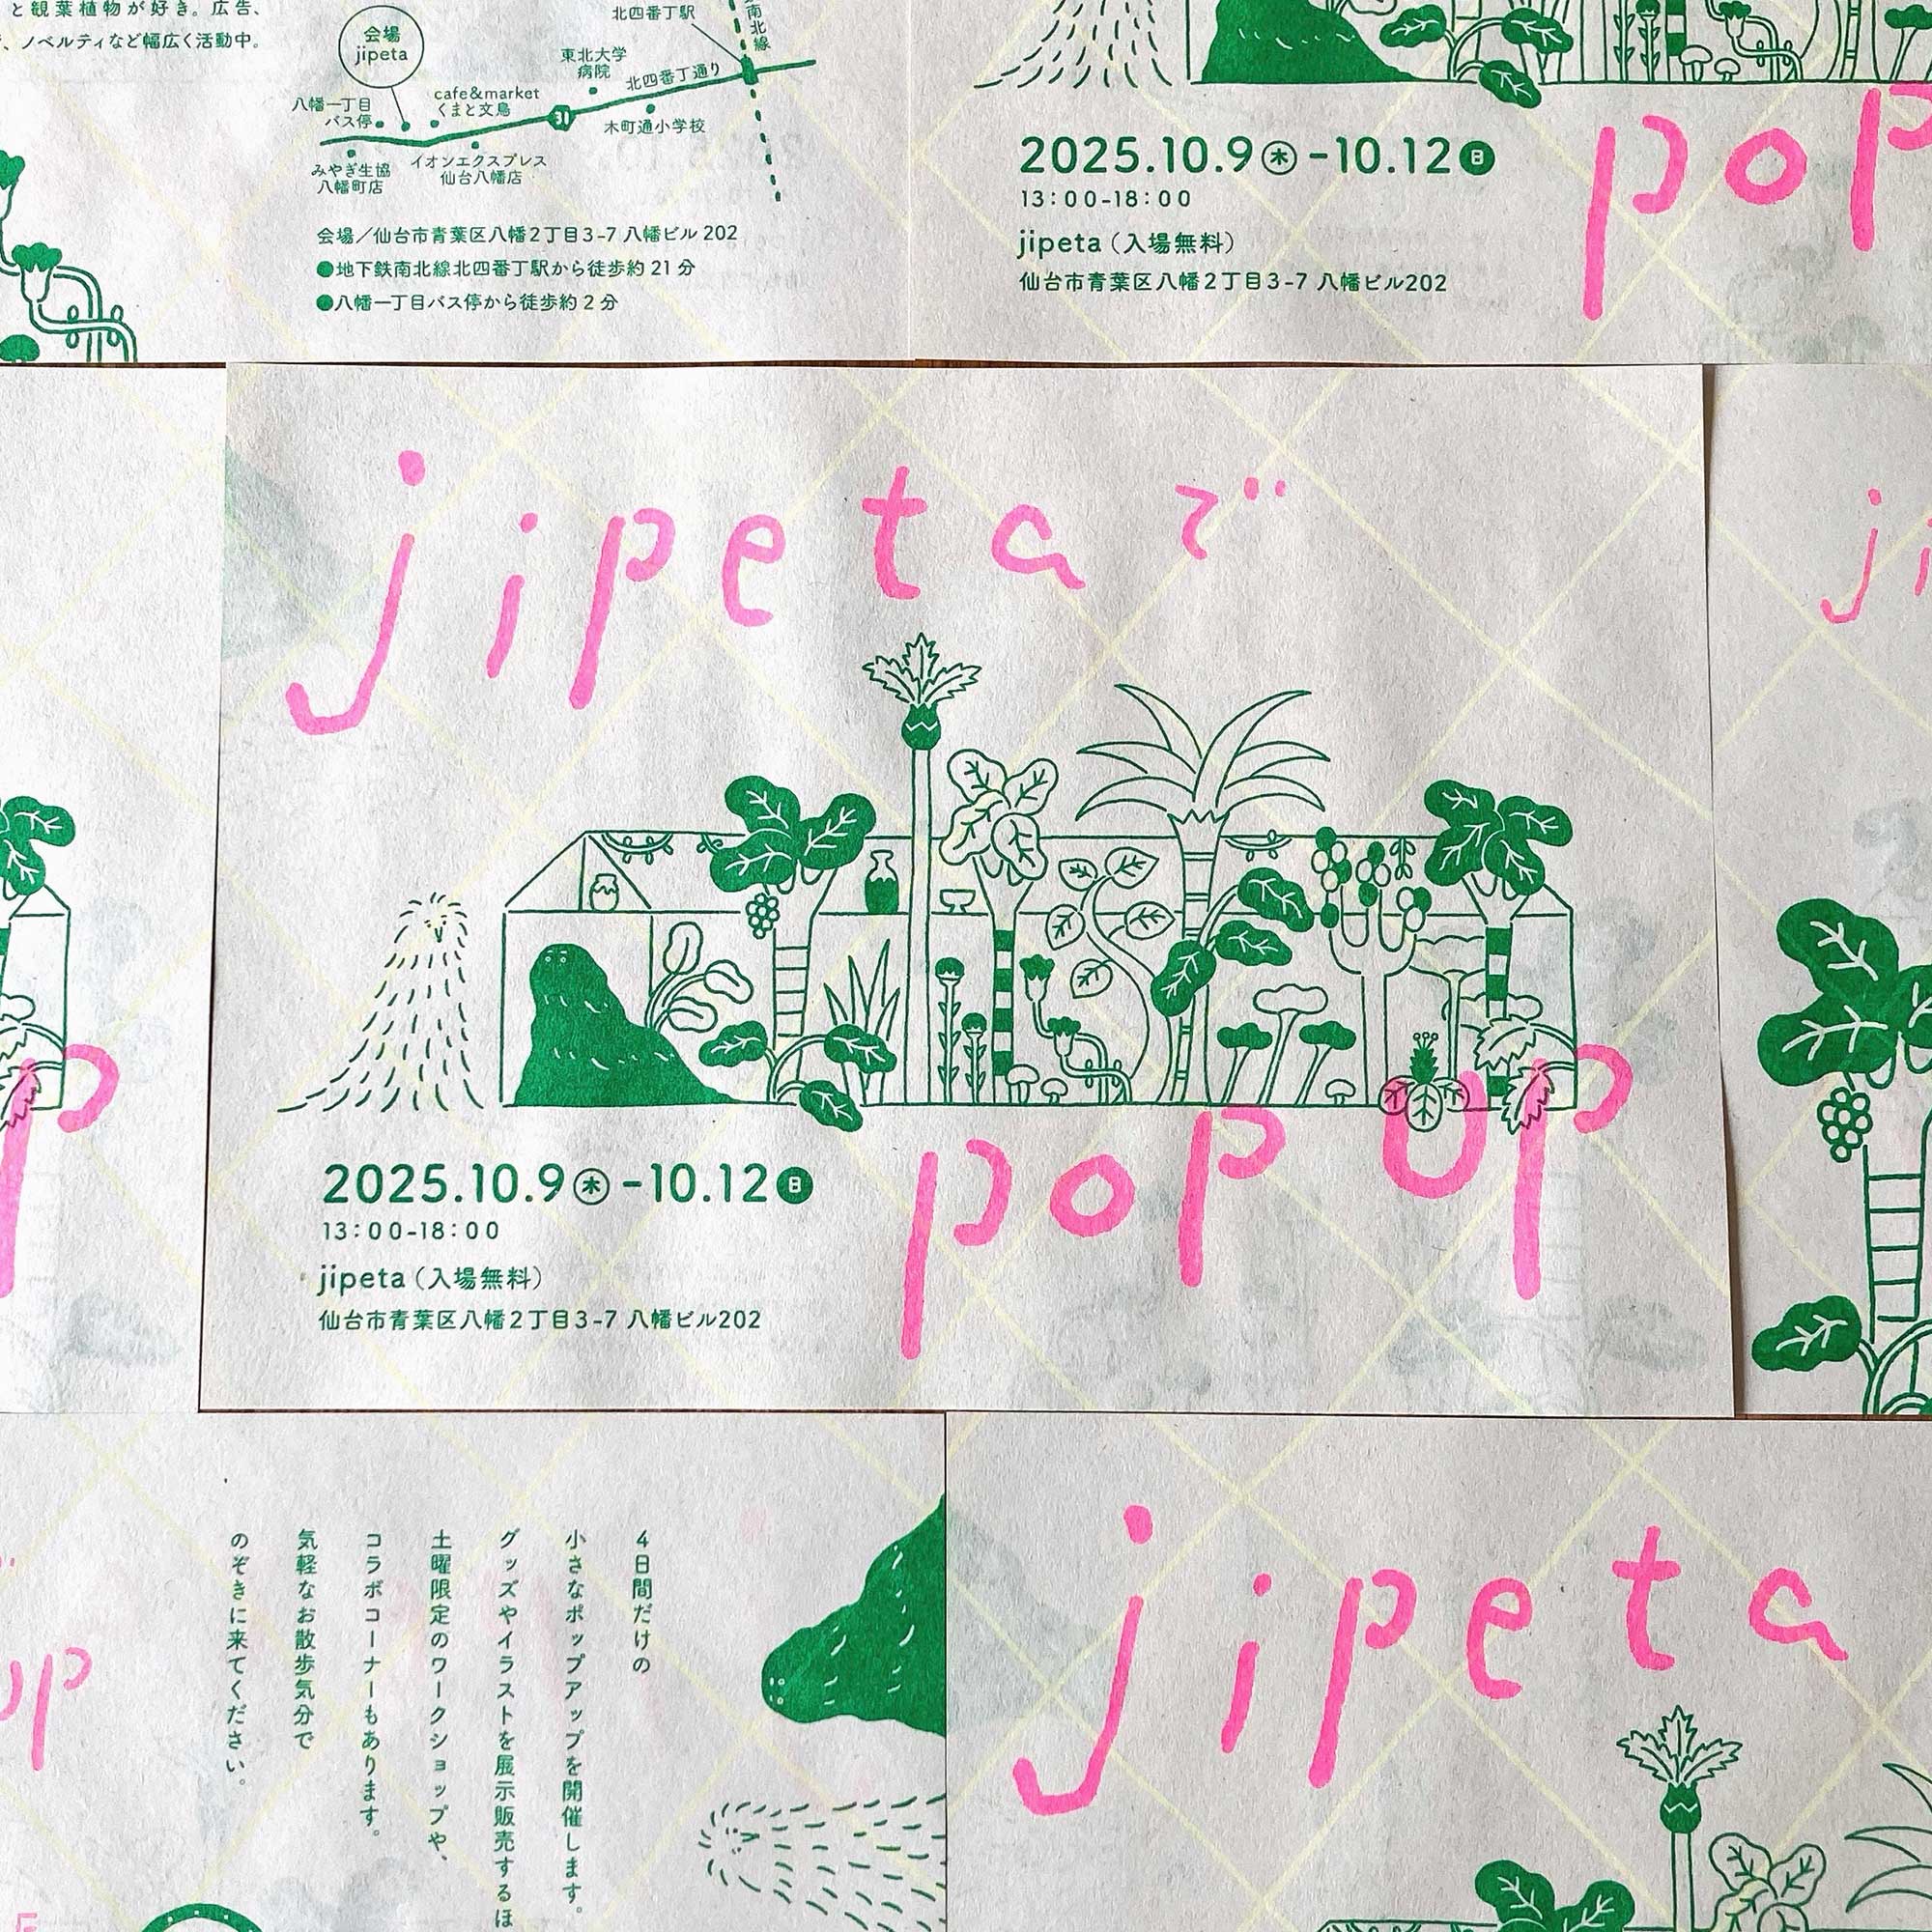 と観葉植物が好き。広告、
、ノベルティなど幅広く活動中。
会場
jipeta
八幡一丁目
バス停
cafe&market
くまと文鳥
東北大学
病院
北四番丁駅
南北線
北四番丁通り
31
木町通小学校
みやぎ生協
八幡町店
イオンエクスプレス
仙台八幡店
会場／仙台市青葉区八幡2丁目3-7 八幡ビル 202
●地下鉄南北線北四番丁駅から徒歩約 21 分
●八幡一丁目バス停から徒歩約 2 分
2025.10.9㊍-10.12㊐
13:00-18:00
jipeta（入場無料）
仙台市青葉区八幡2丁目3-7 八幡ビル202
pop
jipetaで
pop up
2025.10.9㊍-10.12㊐
13:00-18:00
jipeta（入場無料）
仙台市青葉区八幡2丁目3-7 八幡ビル202
ji
p
up
4日間だけの
小さなポップアップを開催します。
グッズやイラストを展示販売するほ
土曜限定のワークショップや、
コラボコーナーもあります。
気軽なお散歩気分で
のぞきに来てください。
jipeta